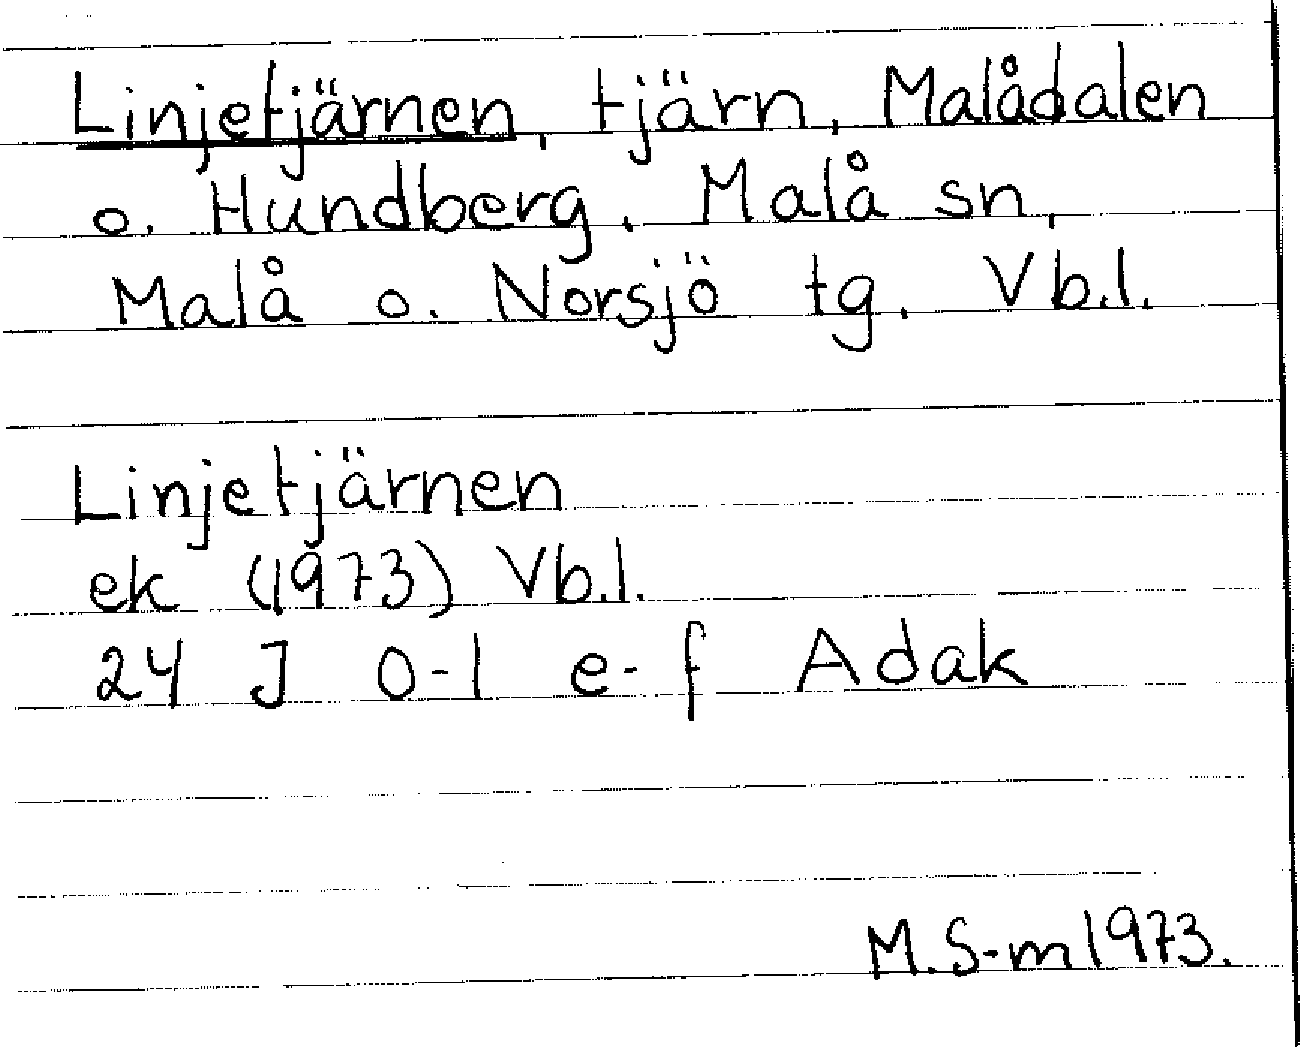 Linjetjärnen, tjärn, Malådalen
o. Hundberg. Malå sn,
Malå o. Norsjö tg. Vb.l.
Linjetjärnen
ek (1973) Vb.l.
24 J 0-1 e-f Adak
M.S-m 1973.